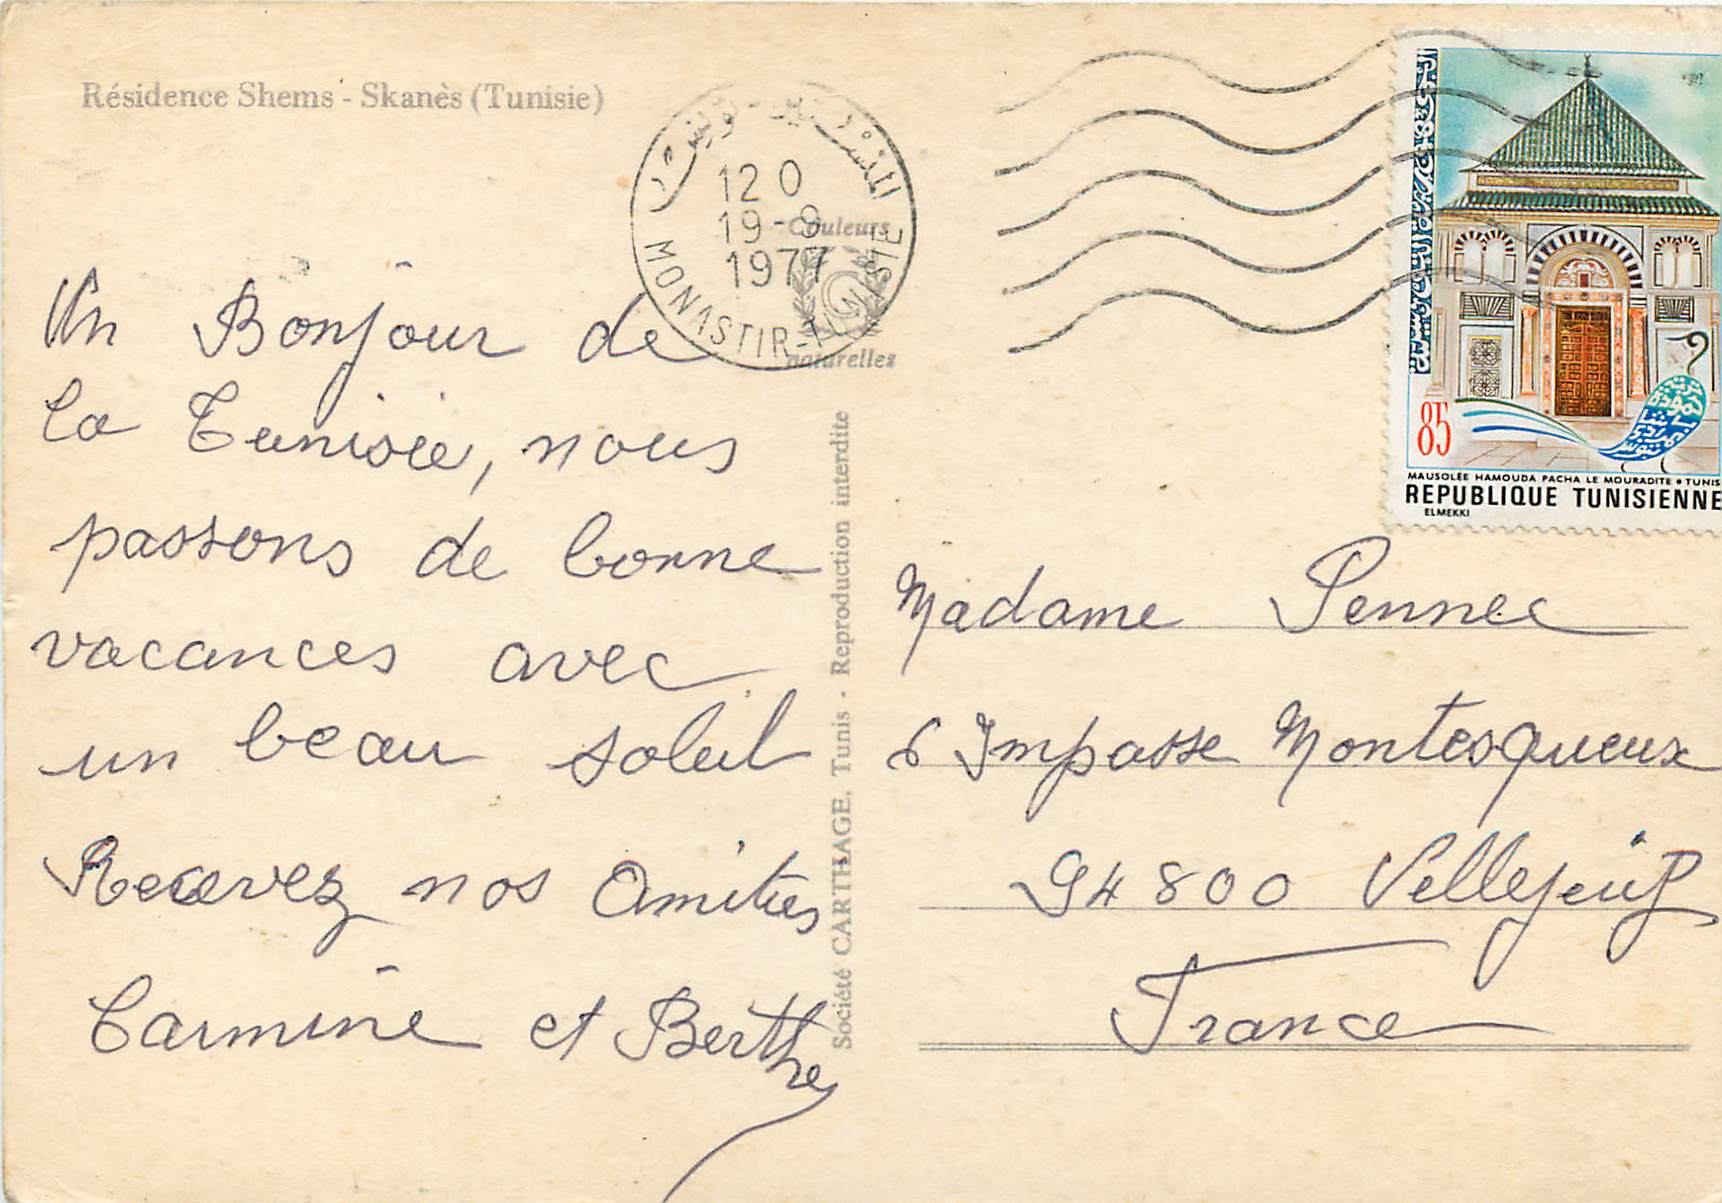 Résidence Shems - Skanès (Tunisie)
12 0
19-9
1977
MONASTIR-TUNISIE
Couleurs
naturelles
85
MAUSOLÉE HAMOUDA PACHA LE MOURADITE • TUNIS
REPUBLIQUE TUNISIENNE
ELMEKKI
Un Bonjour de
la Tunisie, nous
passons de bonne
vacances avec
un beau soleil
Recevez nos Amitiés
Carmine et Berthe
Société CARTHAGE, Tunis - Reproduction interdite
Madame Pennec
6 Impasse Montesqueux
94800 Vellejuif
France